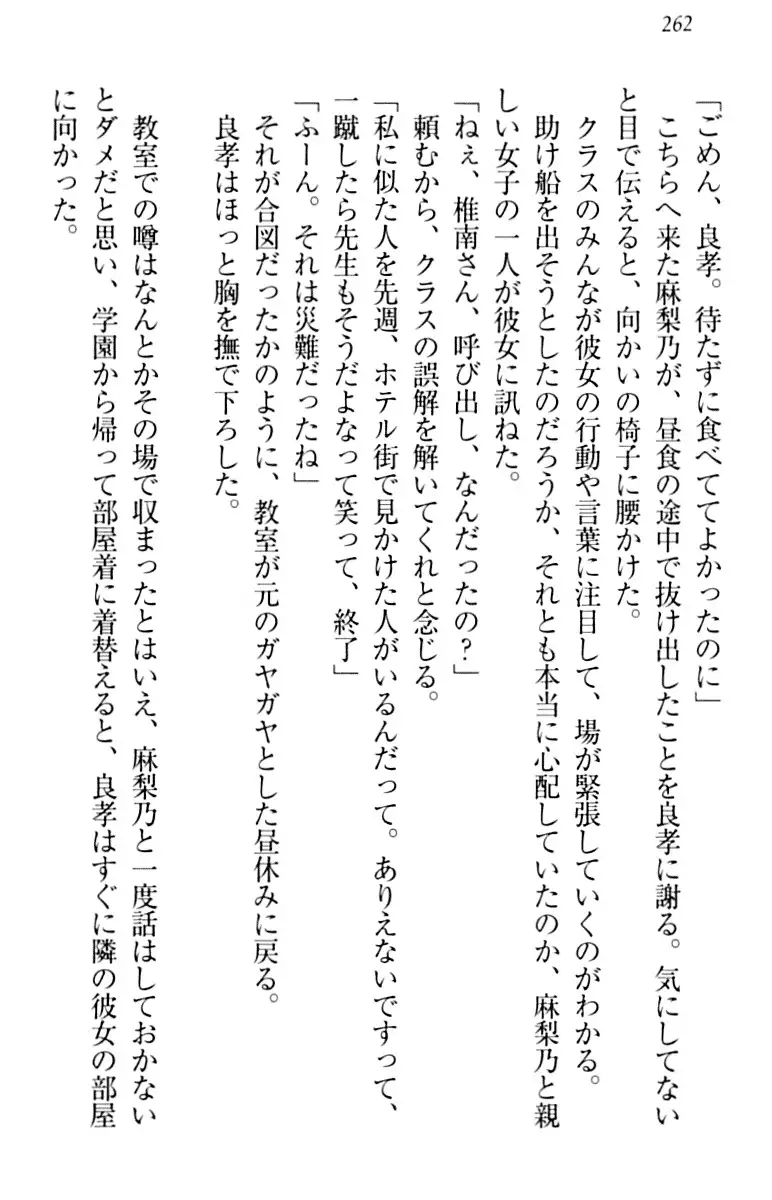 262
「ごめん、良孝。待たずに食べててよかったのに」
こちらへ来た麻梨乃が、昼食の途中で抜け出したことを良孝に謝る。気にしてない
と目で伝えると、向かいの椅子に腰かけた。
クラスのみんなが彼女の行動や言葉に注目して、場が緊張していくのがわかる。
助け船を出そうとしたのだろうか、それとも本当に心配していたのか、麻梨乃と親
しい女子の一人が彼女に訊ねた。
「ねぇ、椎南さん、呼び出し、なんだったの？」
頼むから、クラスの誤解を解いてくれと念じる。
「私に似た人を先週、ホテル街で見かけた人がいるんだって。ありえないですって、
一蹴したら先生もそうだよなって笑って、終了」
「ふーん。それは災難だったね」
それが合図だったかのように、教室が元のガヤガヤとした昼休みに戻る。
良孝はほっと胸を撫で下ろした。
教室での噂はなんとかその場で収まったとはいえ、麻梨乃と一度話はしておかない
とダメだと思い、学園から帰って部屋着に着替えると、良孝はすぐに隣の彼女の部屋
に向かった。